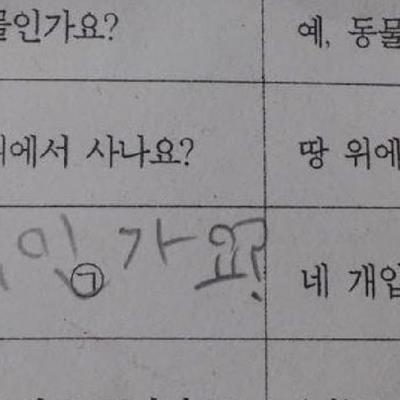 물인가요? 예, 동물
위에서 사나요? 땅 위에
인가요? ㉠ 네 개입